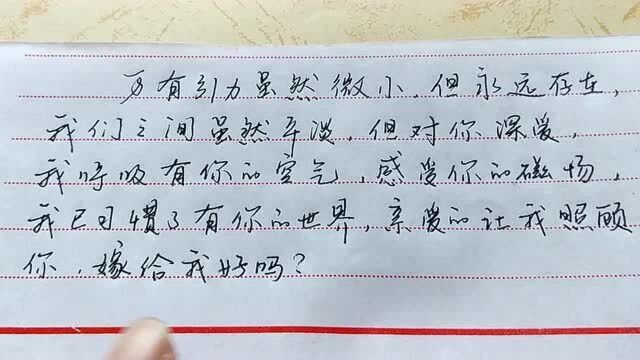 万有引力虽然微小，但永远存在，
我们之间虽然平淡，但对你深爱，
我呼吸有你的空气，感受你的磁场，
我已习惯了有你的世界，亲爱的让我照顾
你，嫁给我好吗？